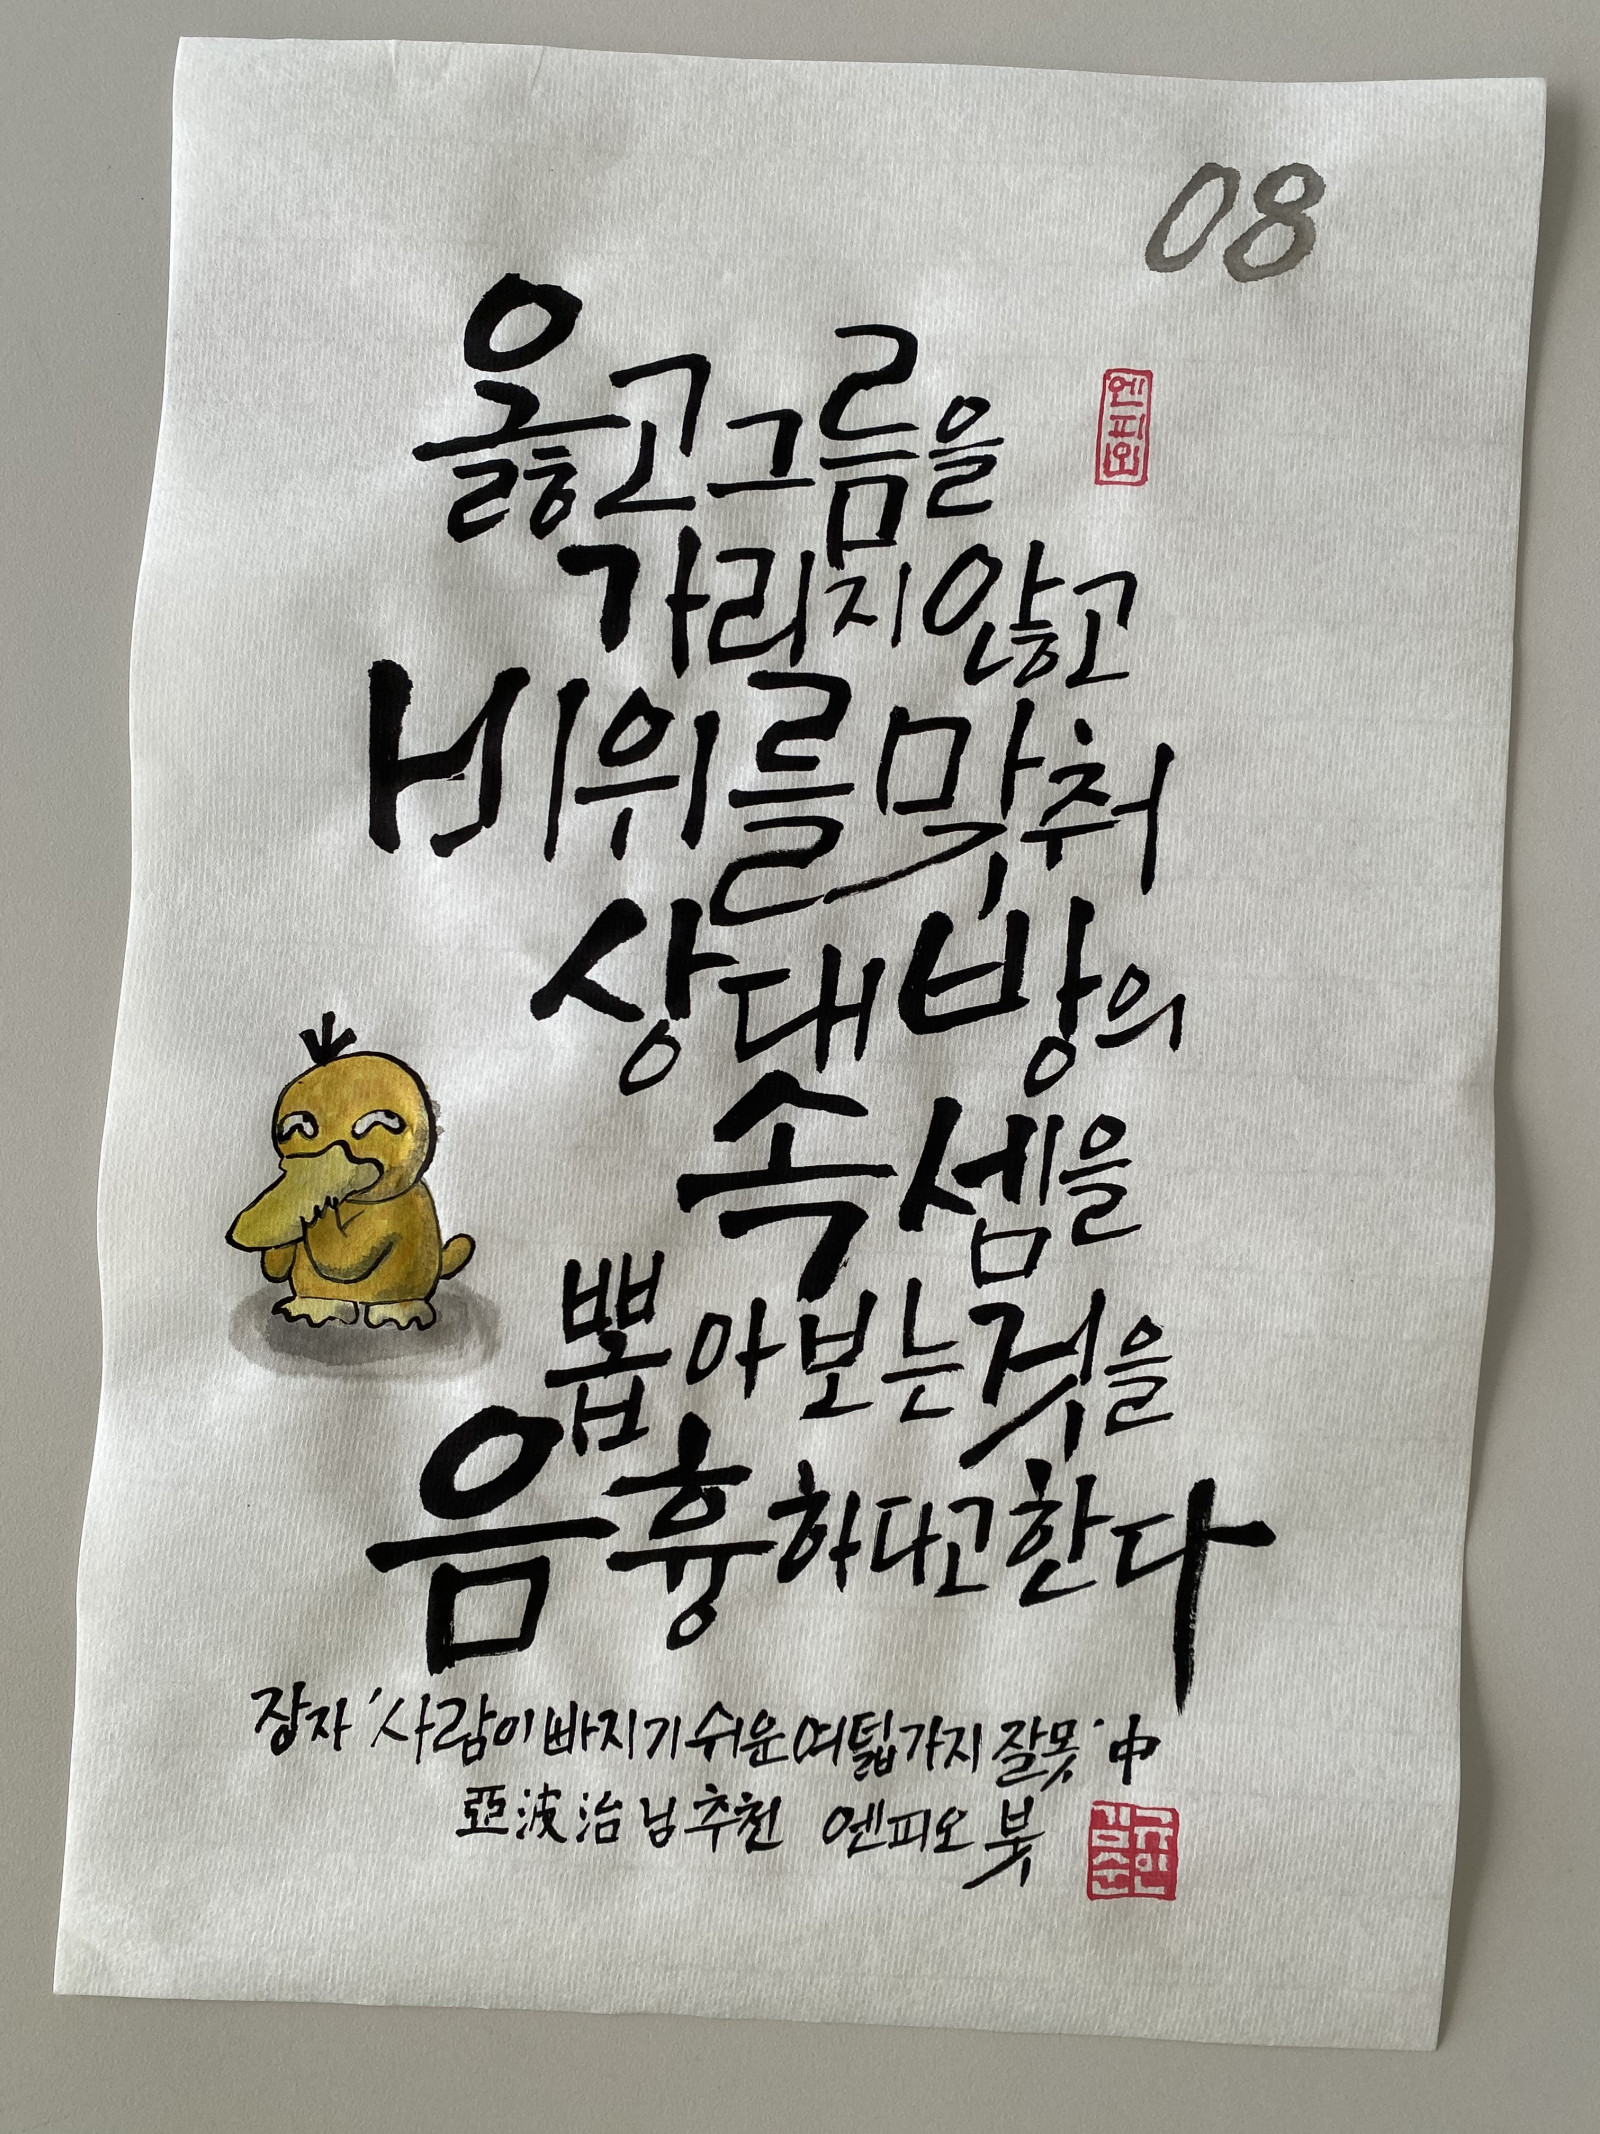 08
옳고그름을
엔피오
가리지않고
비위를맞춰
상대방의
속셈을
뽑아보는것을
음흉하다고한다
장자 '사람이빠지기쉬운여덟가지잘못' 中
亞波治님추천 엔피오 붓